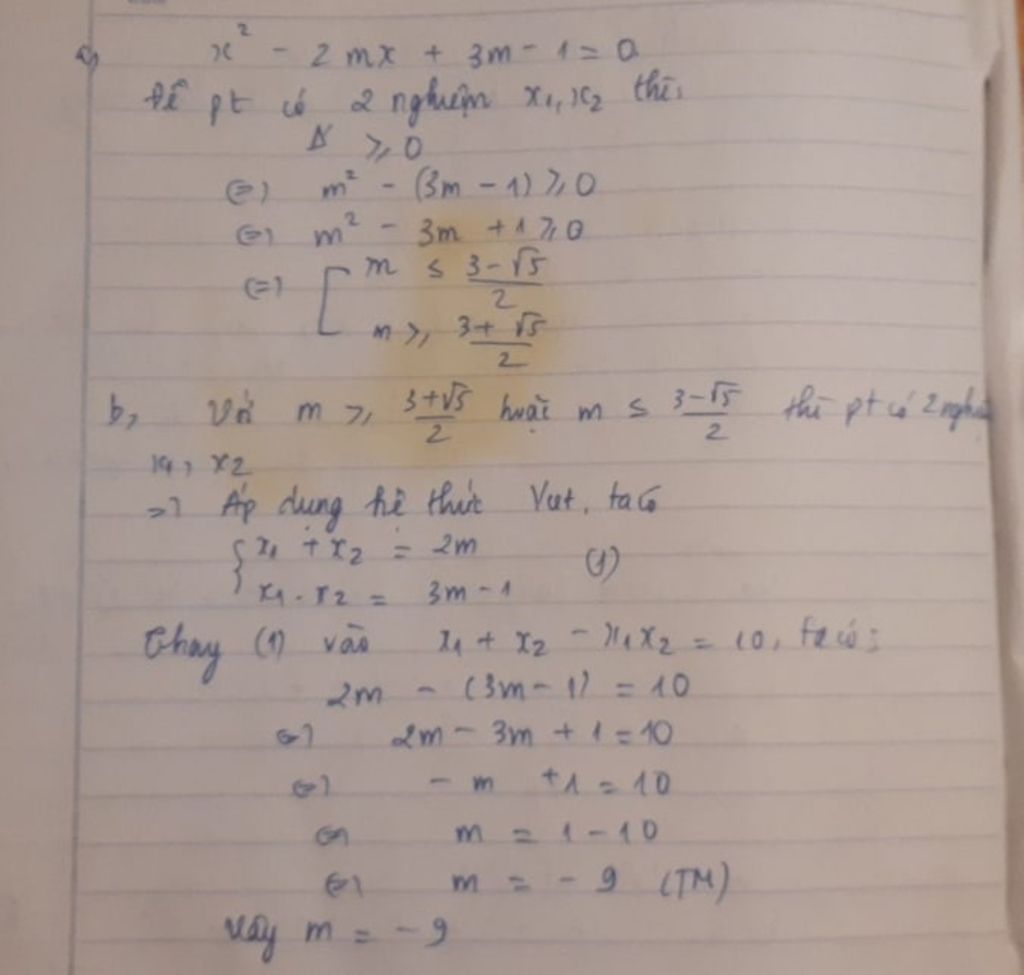 a, x² - 2mx + 3m - 1 = 0
Để pt có 2 nghiệm x₁, x₂ thì:
Δ' ≥ 0
(=) m² - (3m - 1) ≥ 0
(=) m² - 3m + 1 ≥ 0
(=) [ m ≤ (3-√5)/2
m ≥ (3+√5)/2
b, Với m ≥ (3+√5)/2 hoặc m ≤ (3-√5)/2 thì pt có 2 nghiệ
x₁, x₂
=> Áp dụng hệ thức Viet, ta có
{ x₁ + x₂ = 2m
x₁ . x₂ = 3m - 1 (1)
Thay (1) vào x₁ + x₂ - x₁x₂ = 10, ta có:
2m - (3m - 1) = 10
(=) 2m - 3m + 1 = 10
(=) - m + 1 = 10
(=) m = 1 - 10
(=) m = - 9 (TM)
Vậy m = - 9